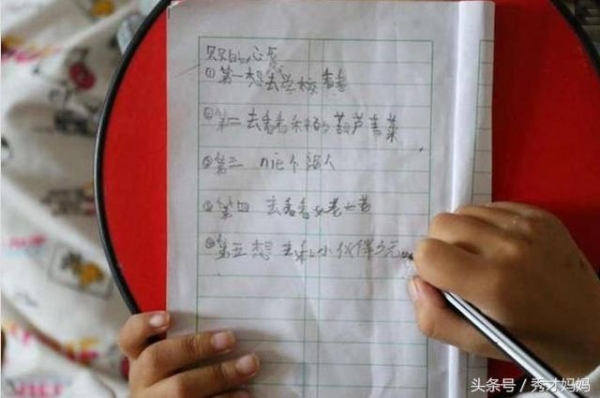 贝贝的心愿
①第一想去学校看看
②第二去看看种的葫芦青菜
③第三 nie个泥人
④第四 去看看
⑤第五想去和小伙伴多元
头条号 / 秀才妈妈